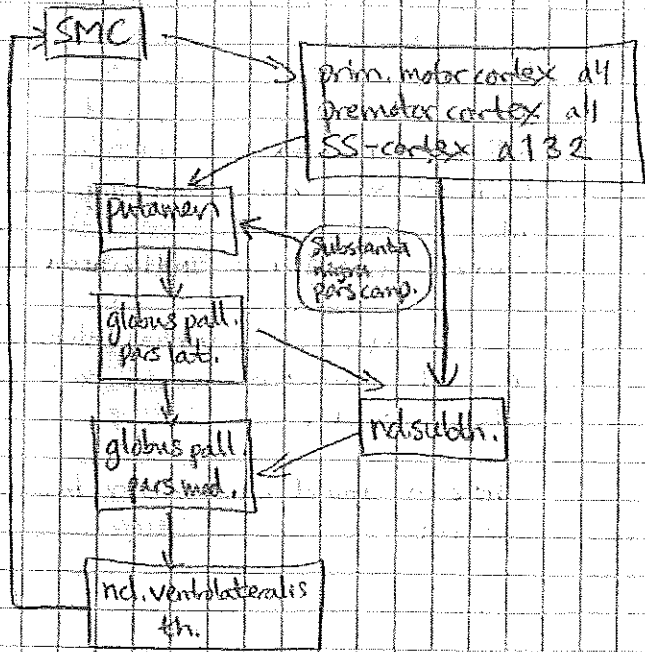 SMC
prim. motor cortex a4
premotor cortex a1
SS-cortex a1 3 2
putamen
Substantia
nigra
pars comp.
globus pall.
pars lat.
globus pall.
pars med.
ncl. subth.
ncl. ventrolateralis
th.